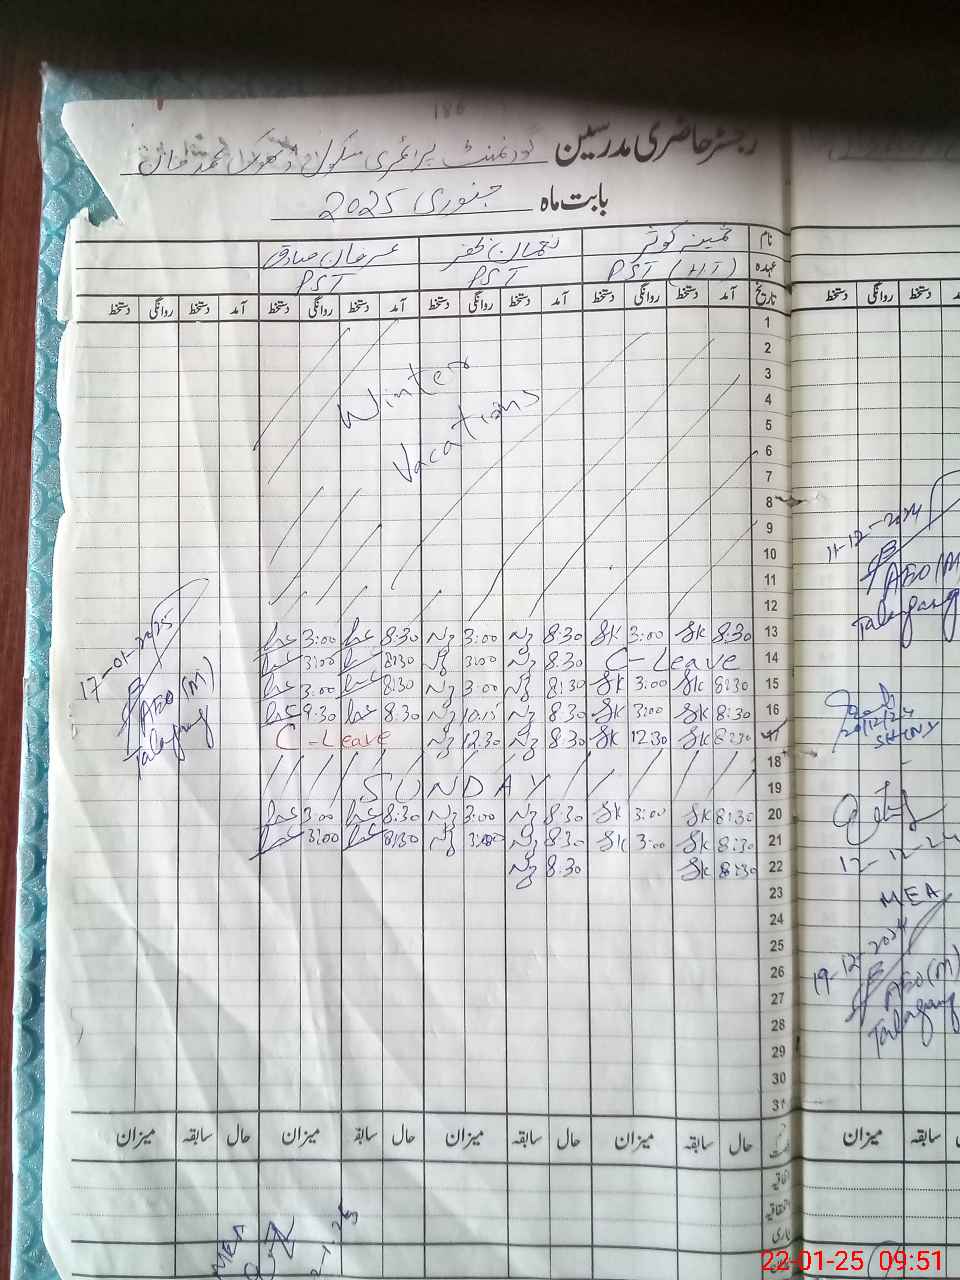 186
رجسٹر حاضری مدرسین گورنمنٹ پرائمری سکول ڈھوک محمد خان
بابت ماہ جنوری 2025
نام ثمینہ کوثر نعمان ظفر عرفان صادق
عہدہ PST (HT) PST PST
تاریخ آمد دستخط روانگی دستخط آمد دستخط روانگی دستخط آمد دستخط روانگی دستخط آمد دستخط روانگی دستخط
1
2
3
4
5
6
7
8
9
10
11
12
Winter
Vacations
13 8:30 SK 3:00 SK 8:30 Nz 3:00 Nz 8:30 3:00
14 C-Leave 8:30 Nz 3:00 Nz 8:30 3:00
15 8:30 SK 3:00 SK 8:30 Nz 3:00 Nz 8:30 3:00
16 8:30 SK 3:00 SK 8:30 Nz 10:15 Nz 8:30 9:30
17 8:30 SK 12:30 SK 8:30 Nz 12:30 Nz C-Leave
18
19 SUNDAY
20 8:30 SK 3:00 SK 8:30 Nz 3:00 Nz 8:30 3:00
21 8:30 SK 3:00 SK 8:30 Nz 3:00 Nz 8:30 3:00
22 8:30 SK 8:30 Nz
23
24
25
26
27
28
29
30
31
حال سابقہ میزان حال سابقہ میزان حال سابقہ میزان حال سابقہ میزان
اتفاقیہ
17-01-2025
AEO (M)
Talagang
MEA
دستخط روانگی دستخط
11-12-2024
AEO (M)
Talagang
20/12/24
12-12-24
MEA
19-12-2024
AEO (M)
Talagang
میزان سابقہ
22-01-25 09:51